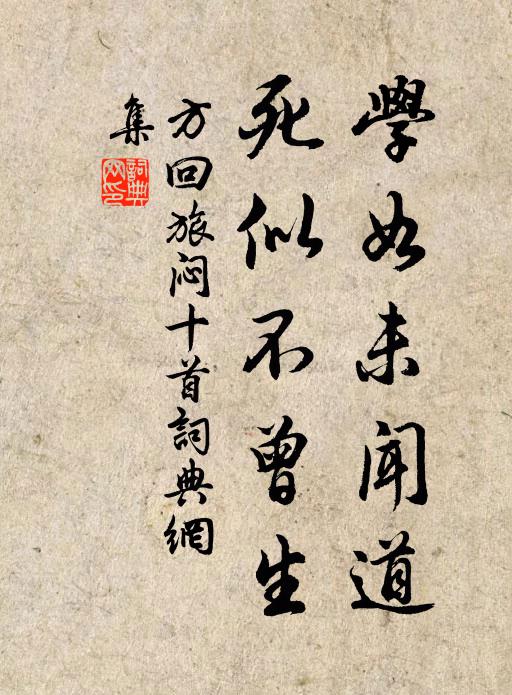 學如未聞道
死似不曾生
方回旅闷十首詞典網
集
詞典网印